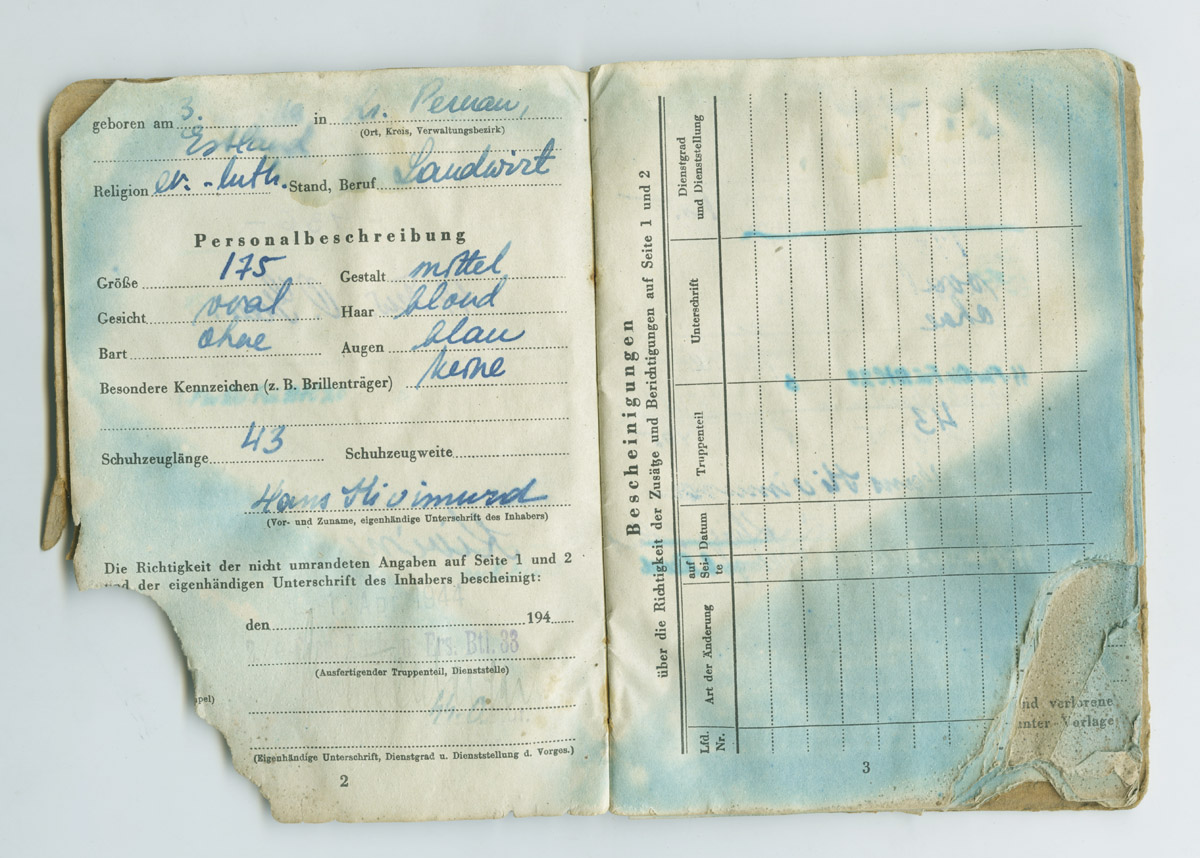 geboren am 3. in Kr. Pernau,
(Ort, Kreis, Verwaltungsbezirk)
Estland
Religion ev.-luth. Stand, Beruf Landwirt
Personalbeschreibung
Größe 175 Gestalt mittel
Gesicht oval Haar blond
Bart ohne Augen blau
Besondere Kennzeichen (z. B. Brillenträger) keine
Schuhzeuglänge 43 Schuhzeugweite
Hans
(Vor- und Zuname, eigenhändige Unterschrift des Inhabers)
Die Richtigkeit der nicht umrandeten Angaben auf Seite 1 und 2
und der eigenhändigen Unterschrift des Inhabers bescheinigt:
1944
den 194
Ers. Btl. 33
(Ausfertigender Truppenteil, Dienststelle)
pel)
(Eigenhändige Unterschrift, Dienstgrad u. Dienststellung d. Vorges.)
2
Bescheinigungen
über die Richtigkeit der Zusätze und Berichtigungen auf Seite 1 und 2
Lfd. Nr.
Art der Änderung
auf Seite
Datum
Truppenteil
Unterschrift
Dienstgrad
und Dienststellung
nd verlorene
unter Vorlage
3